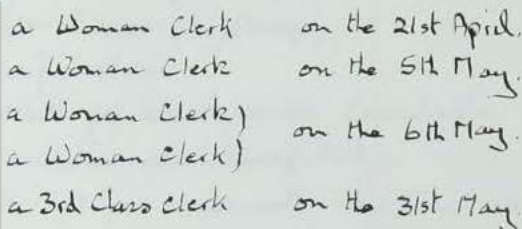 a Woman Clerk on the 21st April.
a Woman Clerk on the 5th May.
a Woman Clerk)
on the 6th May.
a Woman Clerk)
a 3rd Class Clerk on the 31st May.